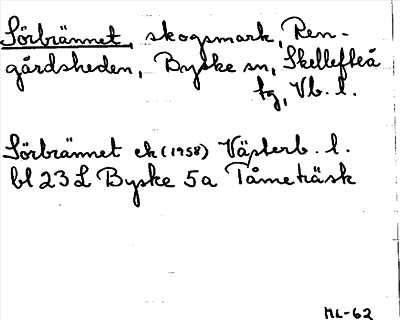 Sörbrännet, skogsmark, Ren-
gårdsheden, Byske sn, Skellefteå
tg, Vb. l.
Sörbrännet ek (1958) Västerb. l.
bl 23 L Byske 5a Tåmeträsk
ML-62